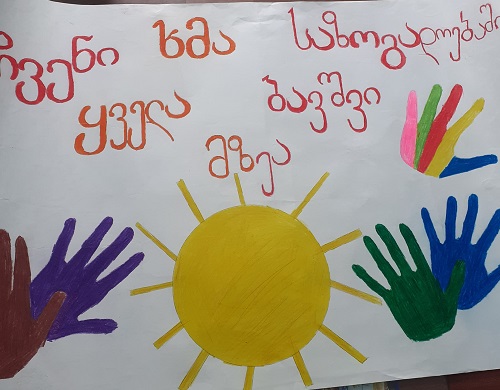 ჩვენი ხმა საზოგადოებაში
ყველა ბავშვი
მზეა